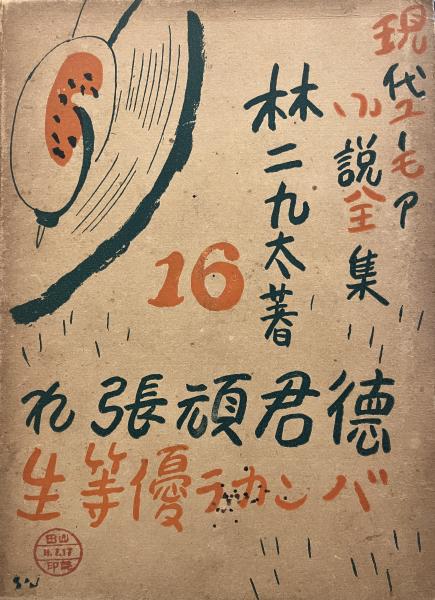 現代ユーモア
小説全集
林二九太著
16
徳君頑張れ
バンカラ優等生